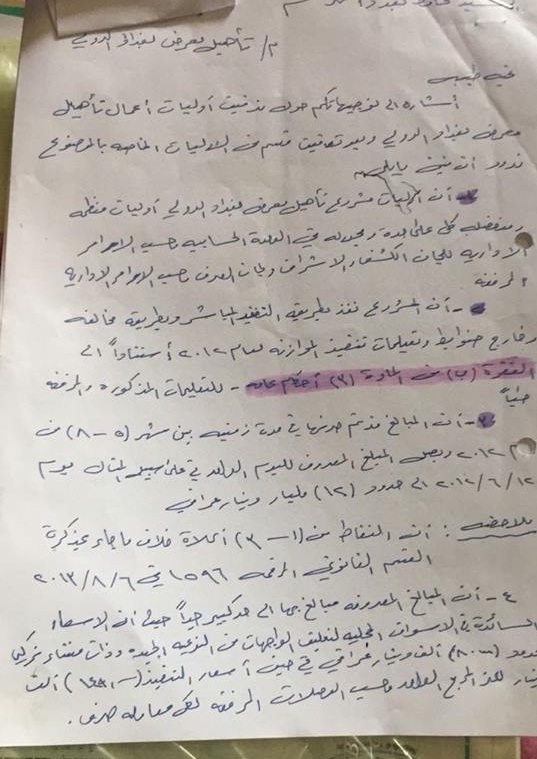 م/ تأهيل معرض بغداد الدولي
تحية طيبة
أشارة الى توجيهاتكم حول تدقيق أوليات أعمال تأهيل
معرض بغداد الدولي وبعد تدقيق قسم من الاوليات الخاصة بالموضوع
نود أن نبين مايلي
- أن أوليات مشروع تأهيل معرض بغداد الدولي أوليات منظمة
ومنفصلة كل على حدة ومجدولة في الحسابية حسب الاوامر
الادارية للجان الكشف والاشراف ولجان الصرف حسب الاوامر الادارية
المرفقة
- أن المشروع نفذ بطريقة التنفيذ المباشر وبطريقة مخالفة
وخارج ضوابط وتعليمات تنفيذ الموازنة لعام ٢٠١٢ أستناداً الى
الفقرة (ب) من المادة (٣) أحكام عامة - للتعليمات المذكورة والمرفقة
طياً
- أن المبالغ قد تم صرفها في مدة زمنية بين شهر (٥ - ٨) من
٢٠١٢ ويصل المبلغ المصروف لليوم الواحد في على سبيل المثال يوم
٢٠١٢/٦/١٢ الى حدود (١٢) مليار دينار عراقي
ملاحظة : أن النقاط من (١ - ٣) أعلاه خلاف ما جاء بمذكرة
القسم القانوني المرقمة ١٥٩٦ في ٢٠١٣/٨/٦
٤ - أن المبالغ المصروفة مبالغ بها الى حد كبير جداً حيث أن الاسعار
السائدة في الاسواق المحلية لتغليف الواجهات من النوعية الجيدة وذات منشأ تركي
حدود ألف دينار عراقي في حين أسعار التنفيذ ألف
دينار للمتر المربع الواحد وحسب الوصلات المرفقة لكل معاملة صرف .